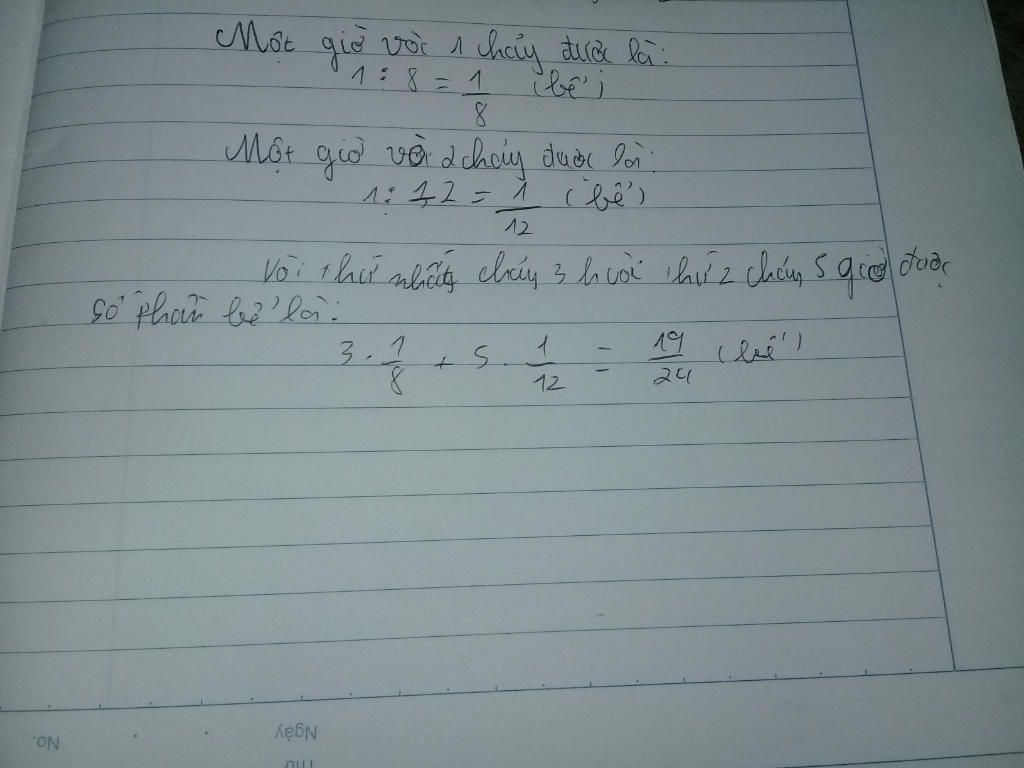 Một giờ vòi 1 chảy được là:
1 : 8 = 1/8 (bể)
Một giờ vòi 2 chảy được là:
1 : 12 = 1/12 (bể)
Vòi thứ nhất chảy 3h vòi thứ 2 chảy 5 giờ được
số phần bể là:
3 . 1/8 + 5 . 1/12 = 19/24 (bể)
Ngày
No.
Thứ